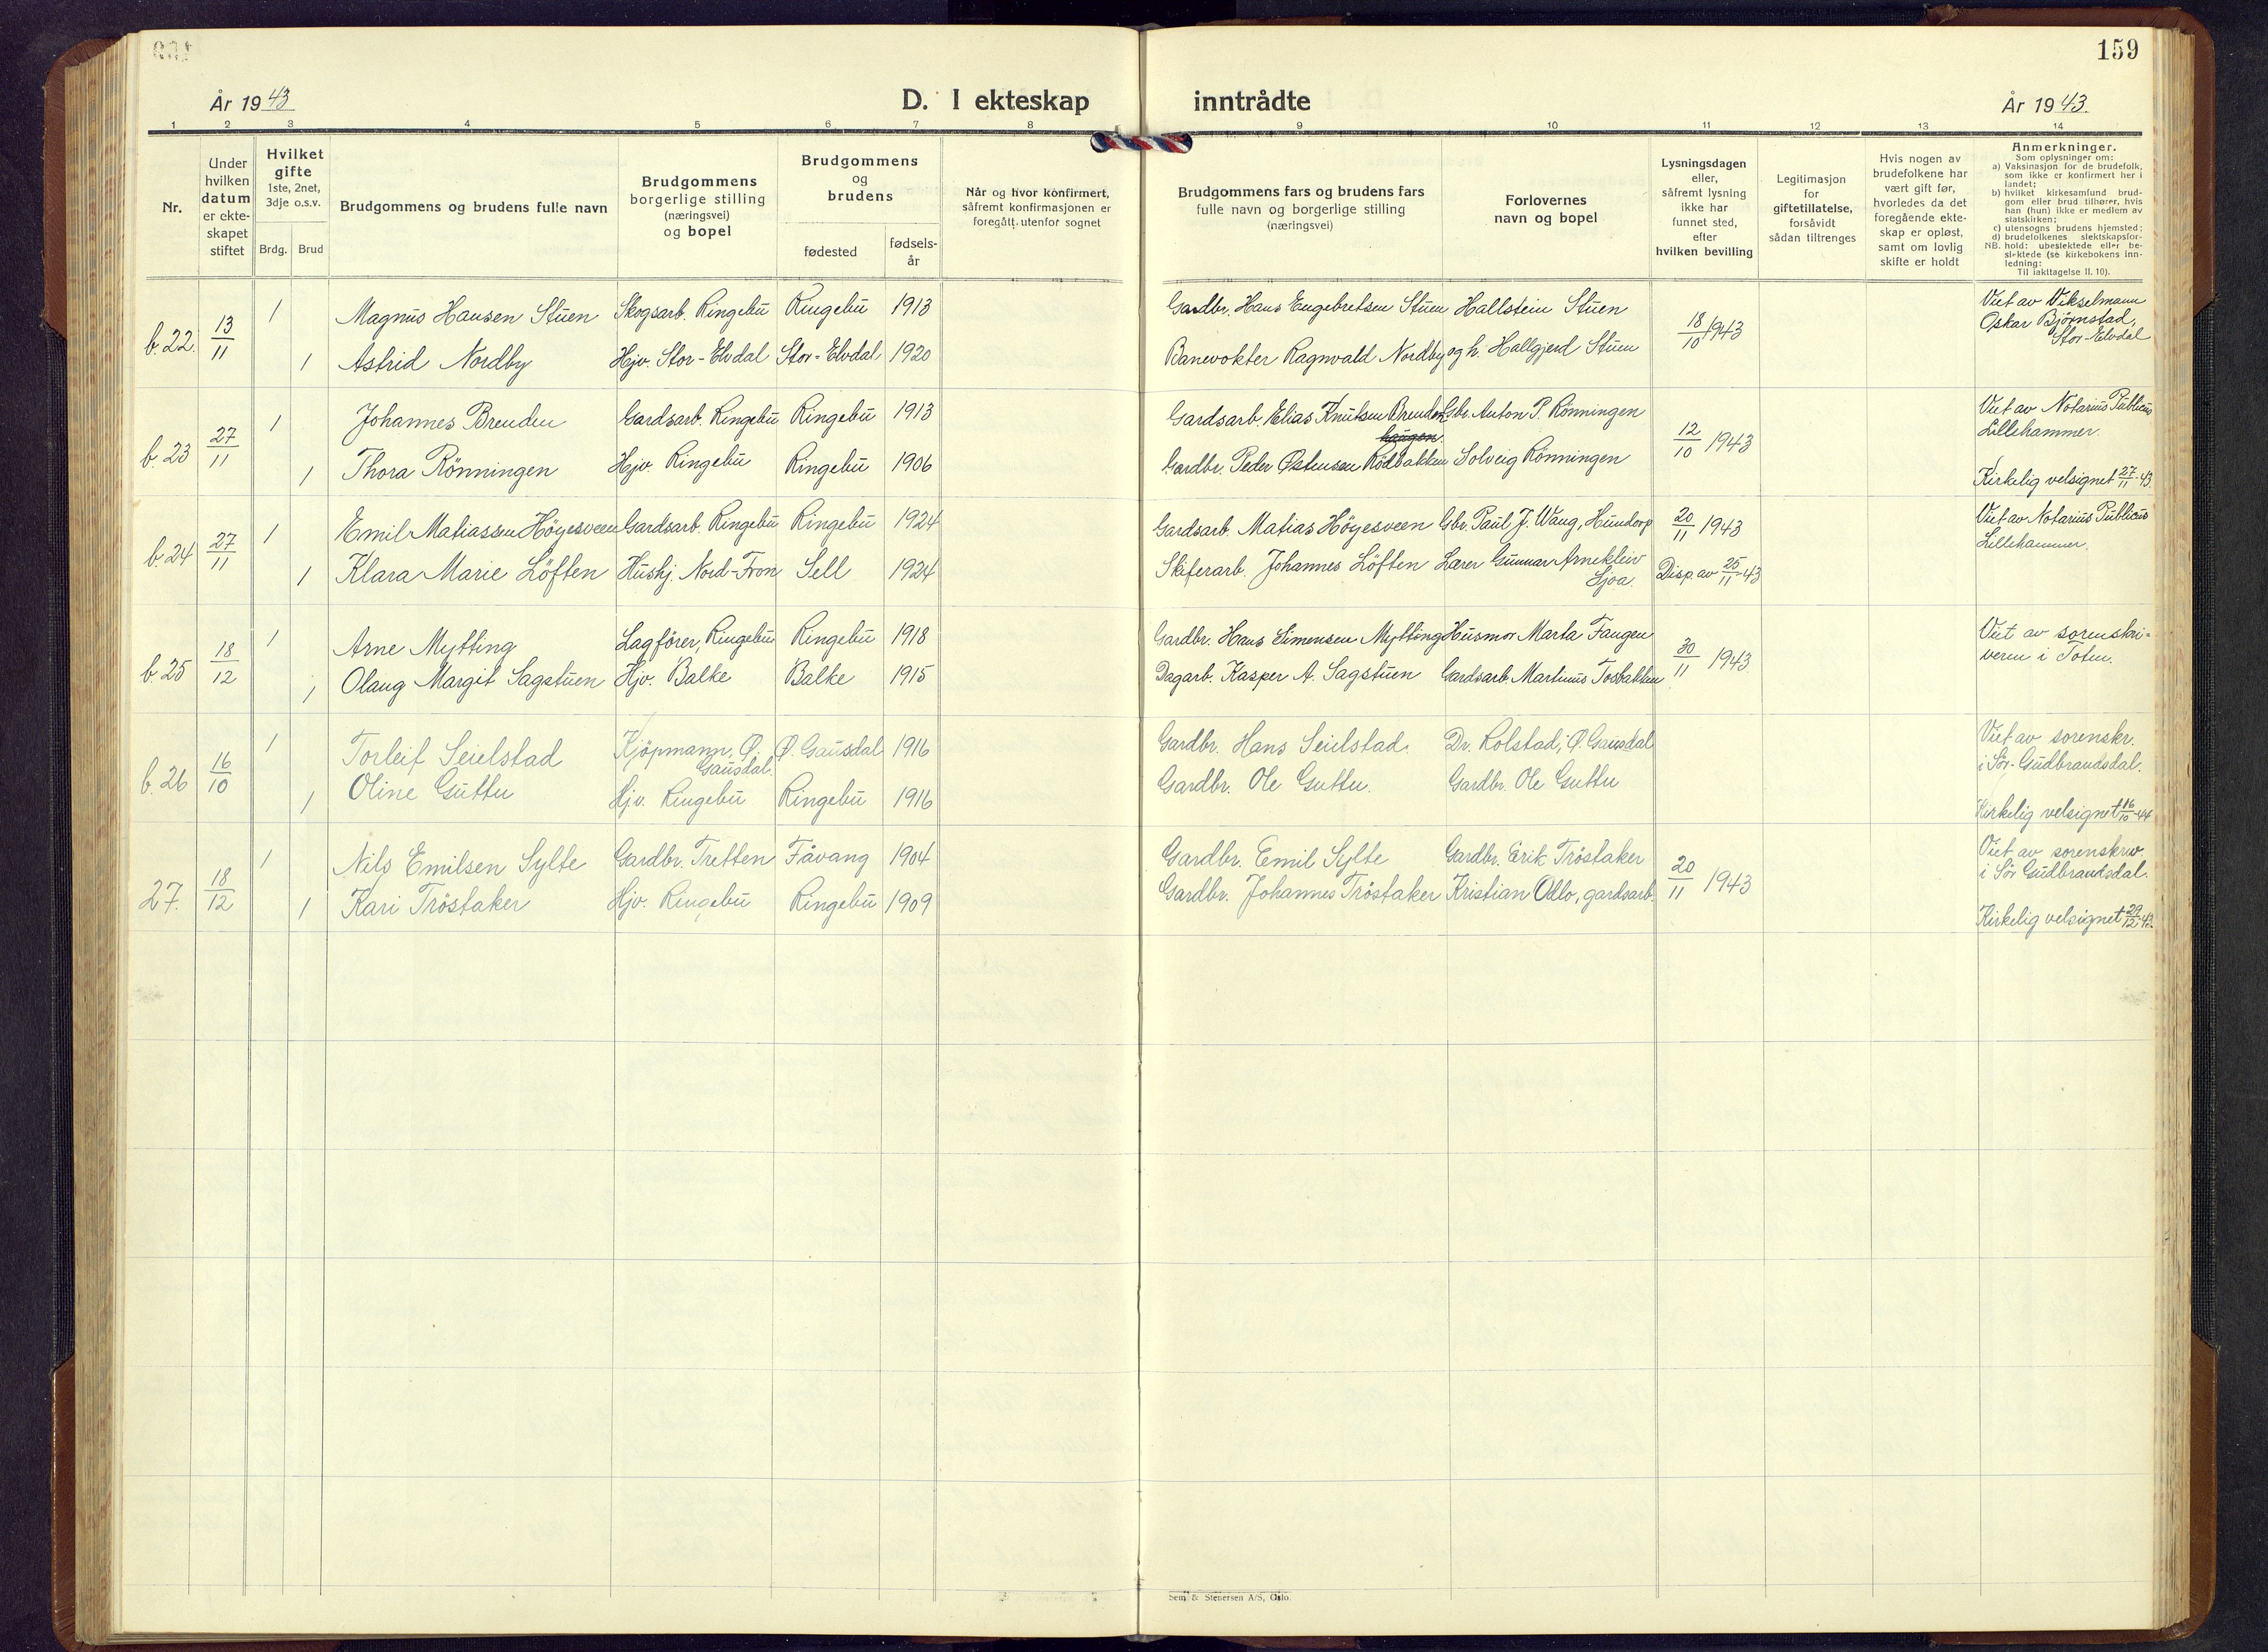 159
År 1943
D. I ekteskap inntrådte
År 1943.
1 2 3 4 5 6 7 8 9 10 11 12 13 14
Nr.
Under
hvilken
datum
er ekte-
skapet
stiftet
Hvilket
gifte
1ste, 2net,
3dje o.s.v.
Brdg. Brud
Brudgommens og brudens fulle navn
Brudgommens
borgerlige stilling
(næringsvei)
og bopel
Brudgommens
og
brudens
fødested
fødsels-
år
Når og hvor konfirmert,
såfremt konfirmasjonen er
foregått utenfor sognet
Brudgommens fars og brudens fars
fulle navn og borgerlige stilling
(næringsvei)
Forlovernes
navn og bopel
Lysningsdagen
eller,
såfremt lysning
ikke har
funnet sted,
efter
hvilken bevilling
Legitimasjon
for
giftetillatelse,
forsåvidt
sådan tiltrenges
Hvis nogen av
brudefolkene har
vært gift før,
hvorledes da det
foregående ekte-
skap er opløst,
samt om lovlig
skifte er holdt
Anmerkninger.
Som oplysninger om:
a) Vaksinasjon for de brudefolk,
som ikke er konfirmert her i
landet;
b) hvilket kirkesamfund brud-
gom eller brud tilhører, hvis
han (hun) ikke er medlem av
statskirken;
c) utensogns brudens hjemsted;
d) brudefolkenes slektskapsfor-
NB. hold: ubeslektede eller be-
slektede (se kirkebokens inn-
ledning:
Til iakttagelse II. 10).
b. 22. 13/11 1 Magnus Hansen Stuen Skogsarb. Ringebu Ringebu 1913 Gardbr. Hans Engebretsen Stuen Hallstein Stuen 18/10 1943 Viet av Vikselmann
Oskar Bjørnstad,
Stor-Elvdal
1 Astrid Nordby Hjv. Stor-Elvdal Stor-Elvdal 1920 Banevokter Ragnvald Nordby og h. Hallgjerd Stuen
b. 23 27/11 1 Johannes Brenden Gardsarb. Ringebu Ringebu 1913 Gardsarb. Elias Knutsen Brenden Gbr. Anton P. Rönningen 12/10 1943 Viet av Notarius Publicus
haugen.
Lillehammer.
1 Thora Rönningen Hjv. Ringebu Ringebu 1906 Gardbr. Peder Østensen Rödbakken Solveig Rönningen
Kirkelig velsignet 27/11-43.
b. 24 27/11 1 Emil Matiassen Höyesveen Gardsarb. Ringebu Ringebu 1924 Gardsarb. Matias Höyesveen Gbr. Paul J. Waug, Hundorp 20/11 1943 Viet av Notarius Publicus
Lillehammer.
1 Klara Marie Löften Hushj. Nord-Fron Sell 1924 Skiferarb. Johannes Löften Lærer Gunnar Arnekleiv
Sjoa. Disp. av 25/11-43
b. 25 18/12 1 Arne Mytting Lagförer, Ringebu Ringebu 1918 Gardbr. Hans Simensen Mytting Husmor Marta Fangen 30/11 1943 Viet av sorenskri-
veren i Toten.
1 Olaug Margit Sagstuen Hjv. Balke Balke 1915 Dagarb. Kasper A. Sagstuen Gardsarb. Martinus Tosbakken
b. 26 16/10 1 Torleif Seielstad Kjöpmann, Ø. Gausdal. Ø. Gausdal 1916 Gardbr. Hans Seielstad. Dr. Rolstad, Ø. Gausdal Viet av sorenskr.
i Sör-Gudbrandsdal.
1 Oline Guttu Hjv. Ringebu Ringebu 1916 Gardbr. Ole Guttu. Gardbr. Ole Guttu
Kirkelig velsignet 16/10-44
27. 18/12 1 Nils Emilsen Sylte Gardbr. Tretten Fåvang 1904 Gardbr. Emil Sylte Gardbr. Erik Tröstaker 20/11 1943 Viet av sorenskriv.
i Sör Gudbrandsdal.
1 Kari Tröstaker Hjv. Ringebu Ringebu 1909 Gardbr. Johannes Tröstaker Kristian Odlo, gardsarb.
Kirkelig velsignet 29/12-43.
Sem & Stenersen A/S, Oslo.